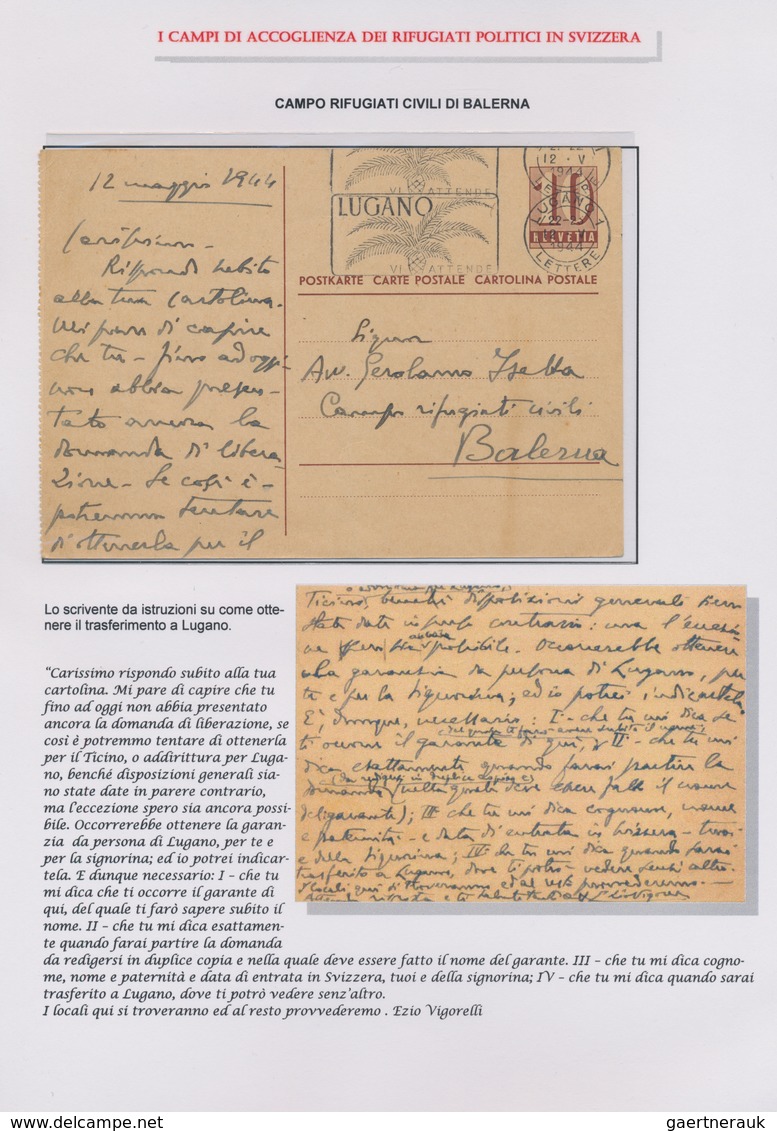 I CAMPI DI ACCOGLIENZA DEI RIFUGIATI POLITICI IN SVIZZERA
CAMPO RIFUGIATI CIVILI DI BALERNA
12 maggio 1944
Carissimo -
Rispondo subito
alla tua cartolina.
Mi pare di capire
che tu - fino ad oggi -
non abbia presen-
tato ancora la
domanda di libera-
zione - Se così è -
potremmo tentare
di ottenerla per il
VI ATTENDE
LUGANO
VI ATTENDE
12 · V
1944
LUGANO 1
1944
LETTERE
10
HELVETIA
POSTKARTE CARTE POSTALE CARTOLINA POSTALE
Signor
Av. Gerolamo Isetta
Campo rifugiati civili
Balerna
Lo scrivente da istruzioni su come otte-
nere il trasferimento a Lugano.
"Carissimo rispondo subito alla tua
cartolina. Mi pare di capire che tu
fino ad oggi non abbia presentato
ancora la domanda di liberazione, se
così è potremmo tentare di ottenerla
per il Ticino, o addirittura per Luga-
no, benché disposizioni generali sia-
no state date in parere contrario,
ma l'eccezione spero sia ancora possi-
bile. Occorrerebbe ottenere la garan-
zia da persona di Lugano, per te e
per la signorina; ed io potrei indicar-
tela. E dunque necessario: I – che tu
mi dica che ti occorre il garante di
qui, del quale ti farò sapere subito il
nome. II – che tu mi dica esattamen-
te quando farai partire la domanda
da redigersi in duplice copia e nella quale deve essere fatto il nome del garante. III – che tu mi dica cogno-
me, nome e paternità e data di entrata in Svizzera, tuoi e della signorina; IV – che tu mi dica quando sarai
trasferito a Lugano, dove ti potrò vedere senz'altro.
I locali qui si troveranno ed al resto provvederemo . Ezio Vigorelli
o addirittura per Lugano,
Ticino, benché disposizioni generali sieno
state date in parere contrario: ma l'eccezio-
ne spero sia ancora possibile. Occorrerebbe ottenere
la garanzia da persona di Lugano, per
te e per la signorina; ed io potrei indicartela.
E', dunque, necessario: I - che tu mi dica se
del quale ti farò avere subito il nome;
ti occorre il garante di qui, II - che tu mi
dica esattamente quando farai partire la
(da redigersi in duplice copia e)
domanda (nella quale deve esser fatto il nome
del garante); III che tu mi dica cognome, nome
e paternità - e data di entrata in Svizzera - tuoi
e della signorina; IV che tu mi dica quando sarai
trasferito a Lugano, dove ti potrò vedere senz'altro.
I locali qui si troveranno ed al resto provvederemo. -
delcampe.net
gaertnerauk